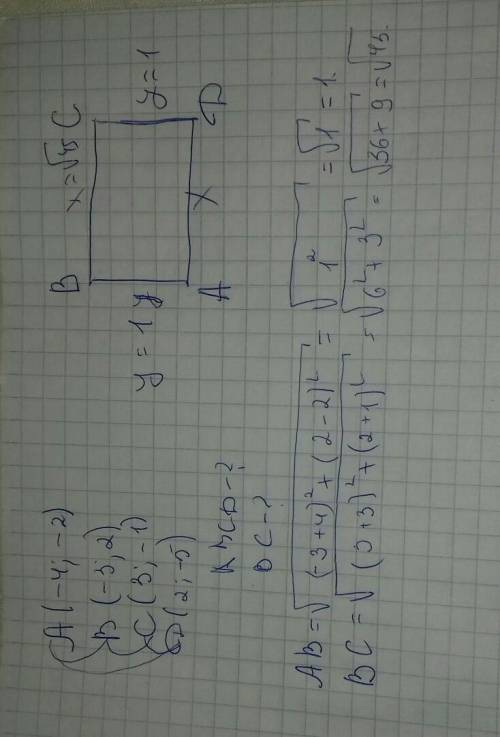 A(-4; -2)
B(-3; 2)
C(3; -1)
D(2; -5)
ABCD-?
DC-?
B x=√45 C
y=1 y
y=1
A x D
AB=√(-3+4)²+(2-2)² = √1² = √1 = 1.
BC=√(3+3)²+(2+1)² = √6²+3² = √36+9 = √45.